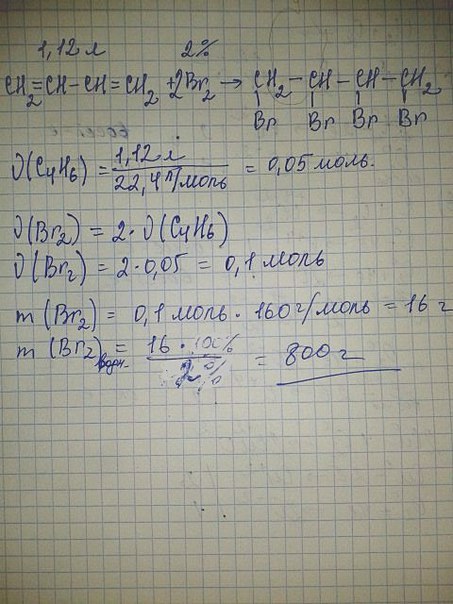 1,12 л 2%
CH₂=CH-CH=CH₂ + 2Br₂ → CH₂-CH-CH-CH₂
Br Br Br Br
ν(C₄H₆) = 1,12 л / 22,4 л/моль = 0,05 моль.
ν(Br₂) = 2·ν(C₄H₆)
ν(Br₂) = 2·0,05 = 0,1 моль
m(Br₂) = 0,1 моль · 160 г/моль = 16 г
m(Br₂)водн. = 16 · 100% / 2% = 800 г